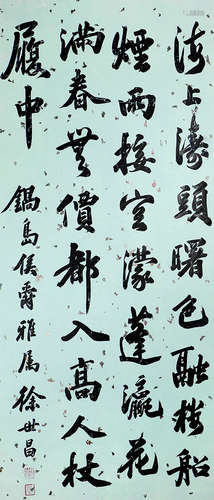 海上濠頭曙色融楼船
煙雨接空濛蓬瀛花
滿春無價都入高人杖
履中
鍋島侯爵雅属 徐世昌